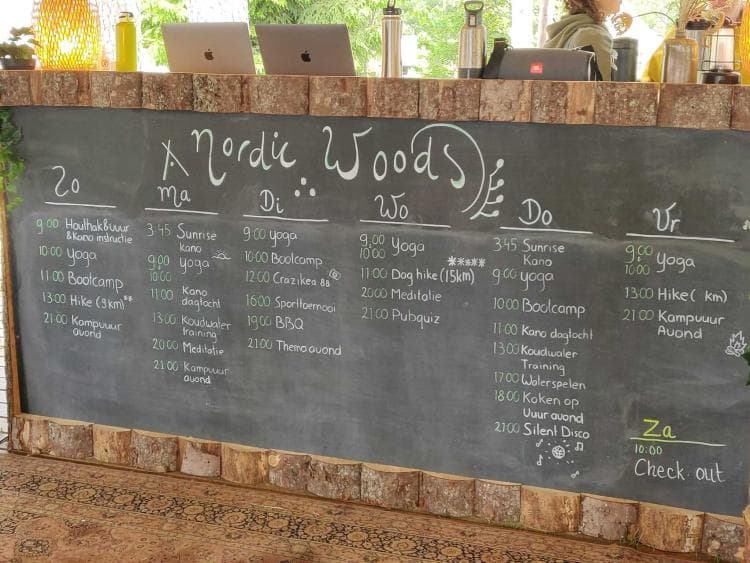 Nordic Woods
Zo
9:00 Houthak & vuur
& Kano instructie
10:00 Yoga
11:00 Bootcamp
13:00 Hike (9km)**
21:00 Kampvuur
avond
Ma
3:45 Sunrise
Kano
9:00 yoga
10:00
11:00 Kano
dagtocht
13:00 Koudwater
training
20:00 Meditatie
21:00 Kampvuur
avond
Di
9:00 yoga
10:00 Bootcamp
12:00 Crazikea 88
16:00 Sporttoernooi
19:00 BBQ
21:00 Thema avond
Wo
9:00 Yoga
10:00
*****
11:00 Dag hike (15km)
20:00 Meditatie
21:00 Pubquiz
Do
3:45 Sunrise
Kano
9:00 yoga
10:00 Bootcamp
11:00 Kano dagtocht
13:00 Koudwater
Training
17:00 Waterspelen
18:00 Koken op
Vuur avond
21:00 Silent Disco
Vr
9:00 Yoga
10:00
13:00 Hike ( km)
21:00 Kampvuur
Avond
Za
10:00
Check out
JBL